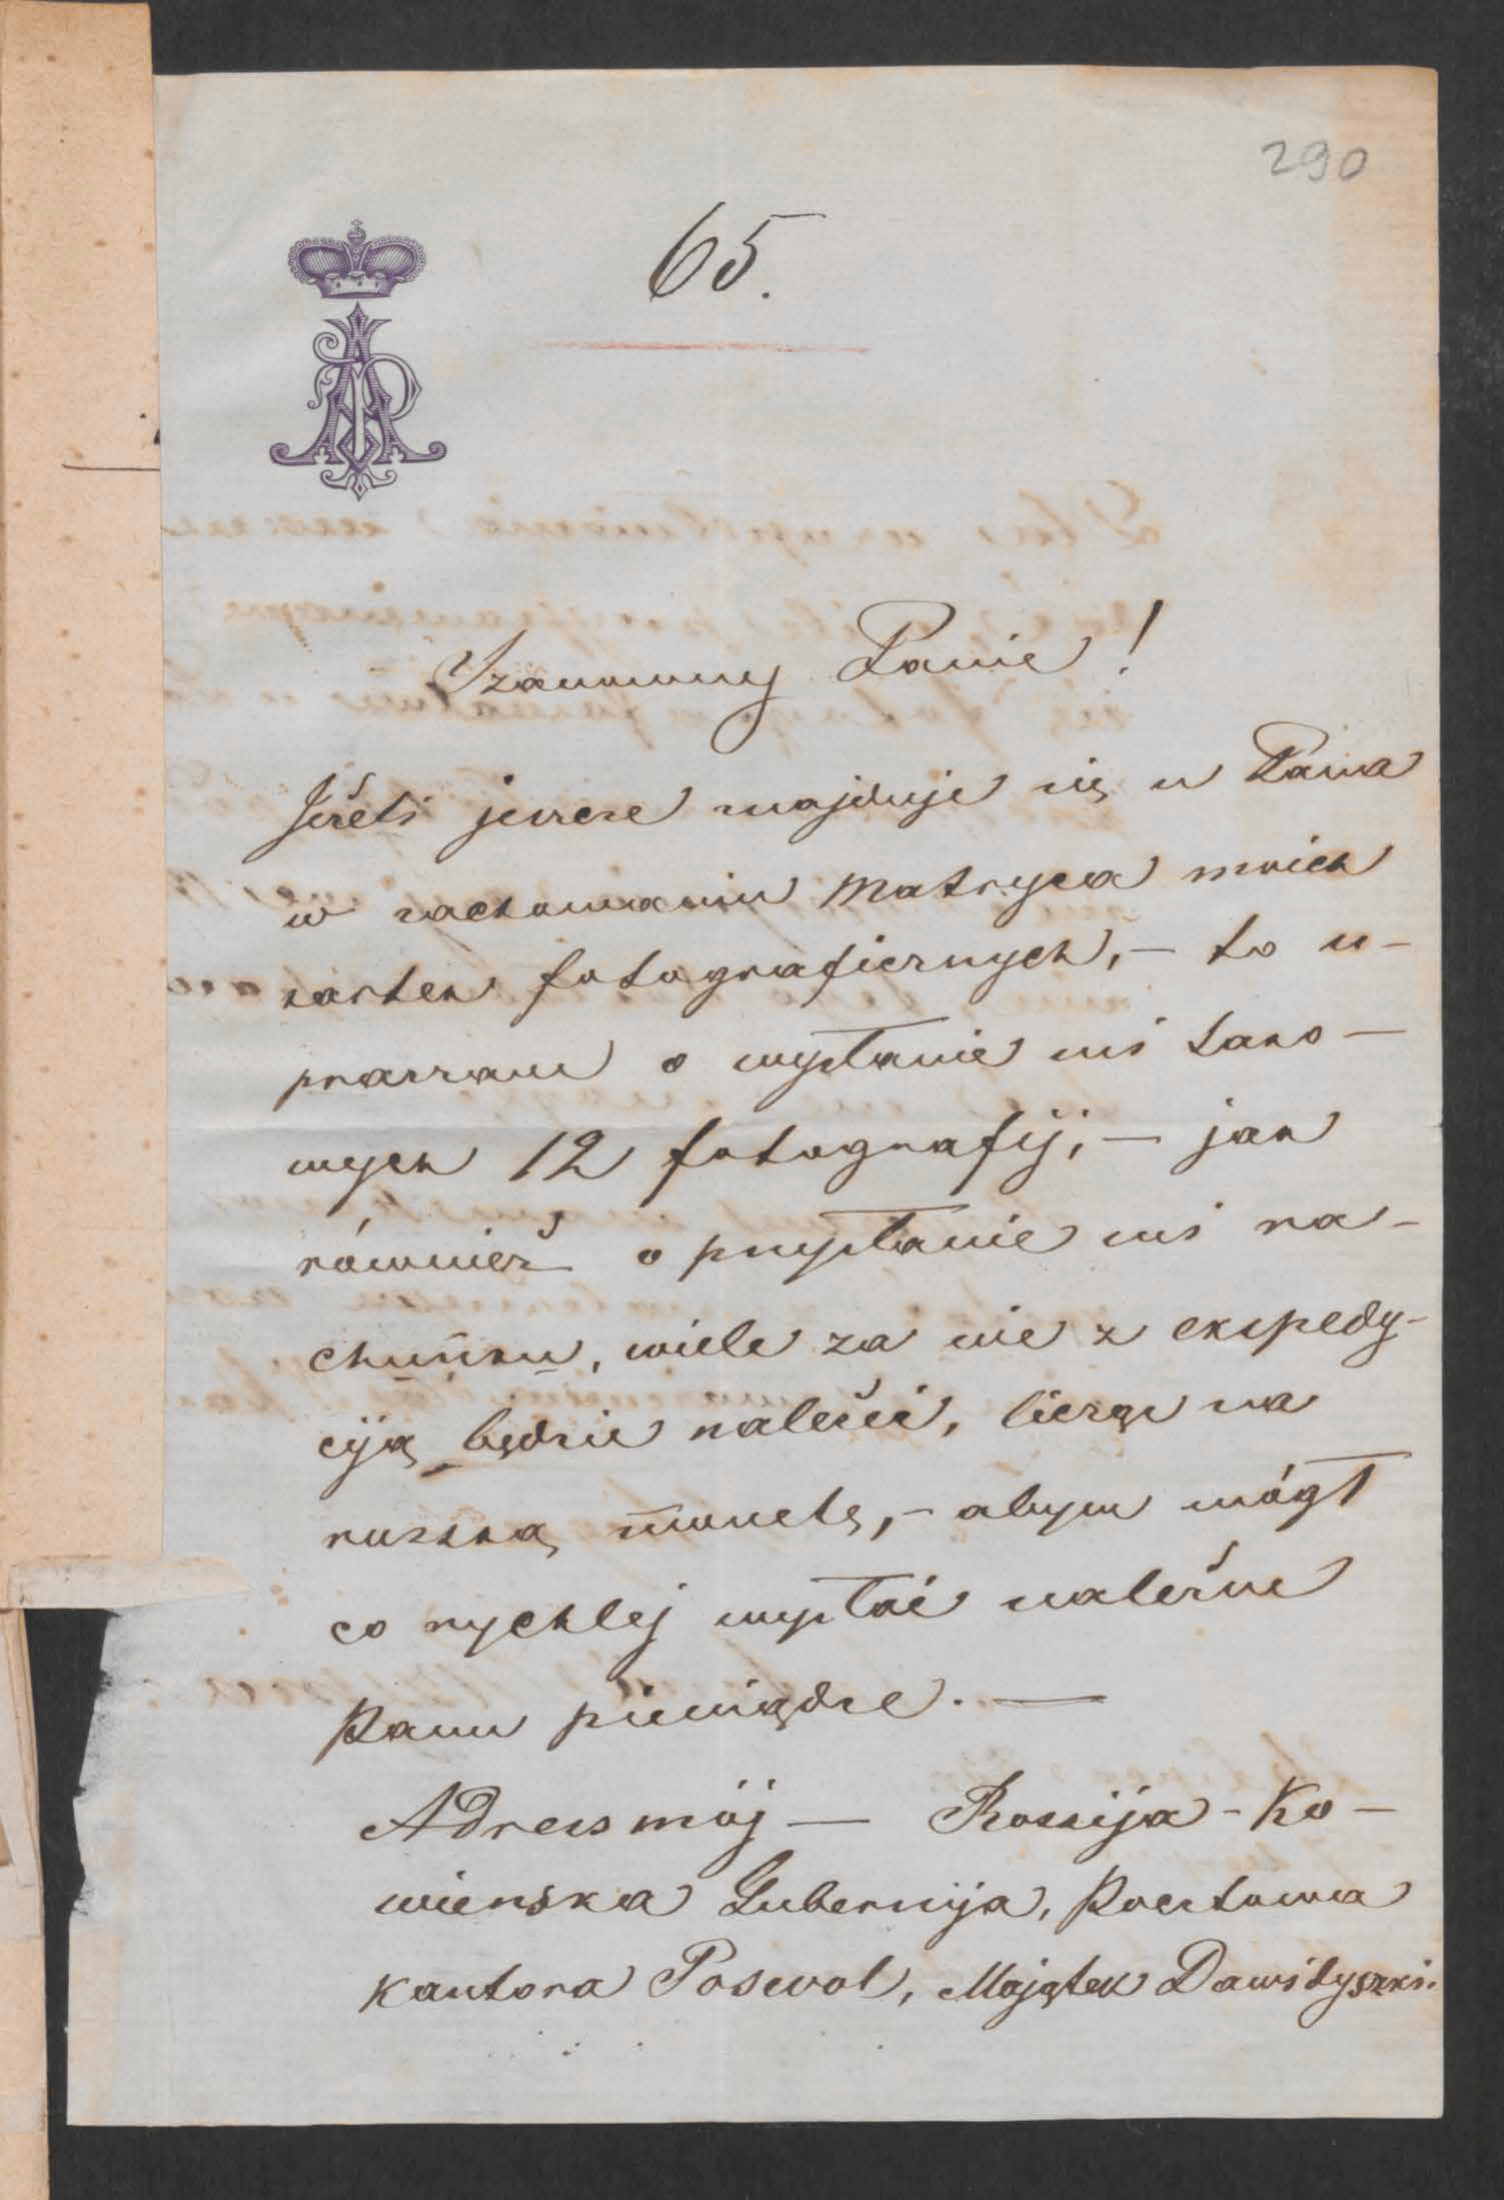 290
65.
Szanowny Panie!
Jeżeli jeszcze znajduje się u Pana
w zachowaniu Matryca moich
kartek fotograficznych, – to u-
praszam o wysłanie mi tako-
wych 12 fotografij, – jak
również o przysłanie mi ra-
chunku, wiele za nie z ekspedy-
cyją będzie należeć, licząc na
ruską monetę, – abym mógł
co rychlej wysłać należne
Panu pieniądze. —
Adress mój — Rossija - Ko-
wienska Gubernija, Pocztowa
Kantora Poswol, Majątek Dawidyszki.